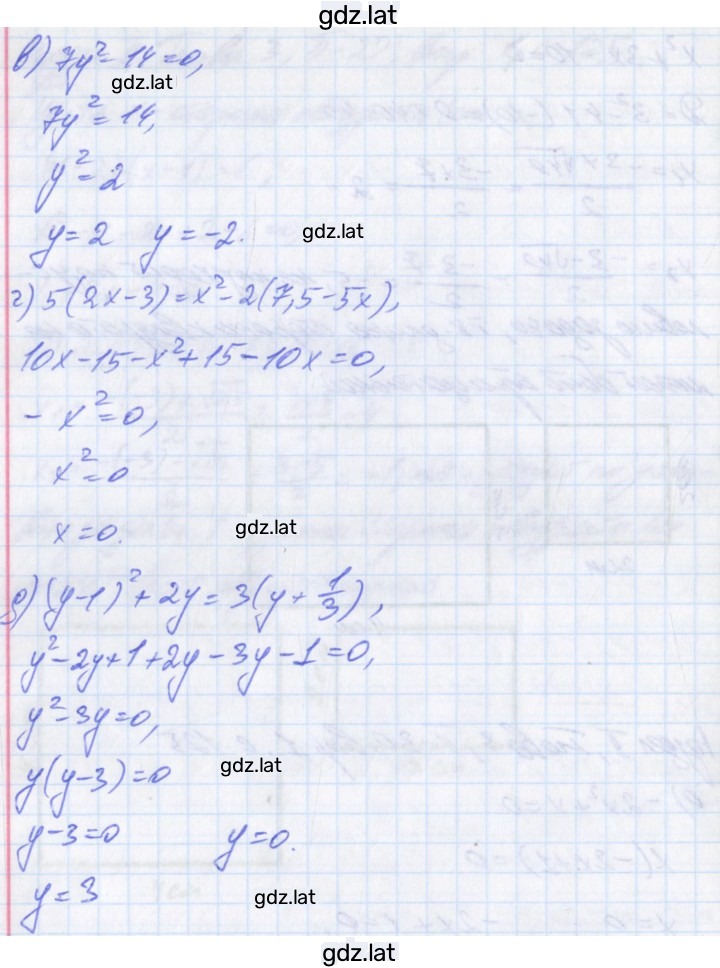 gdz.lat
в) 7y²-14=0,
gdz.lat
7y²=14,
y²=2
y=2 y=-2.
gdz.lat
г) 5(2x-3)=x²-2(7,5-5x),
10x-15-x²+15-10x=0,
-x²=0,
x²=0
gdz.lat
x=0.
д) (y-1)²+2y=3(y+1/3),
y²-2y+1+2y-3y-1=0,
y²-3y=0,
gdz.lat
y(y-3)=0
y-3=0 y=0.
y=3
gdz.lat
gdz.lat